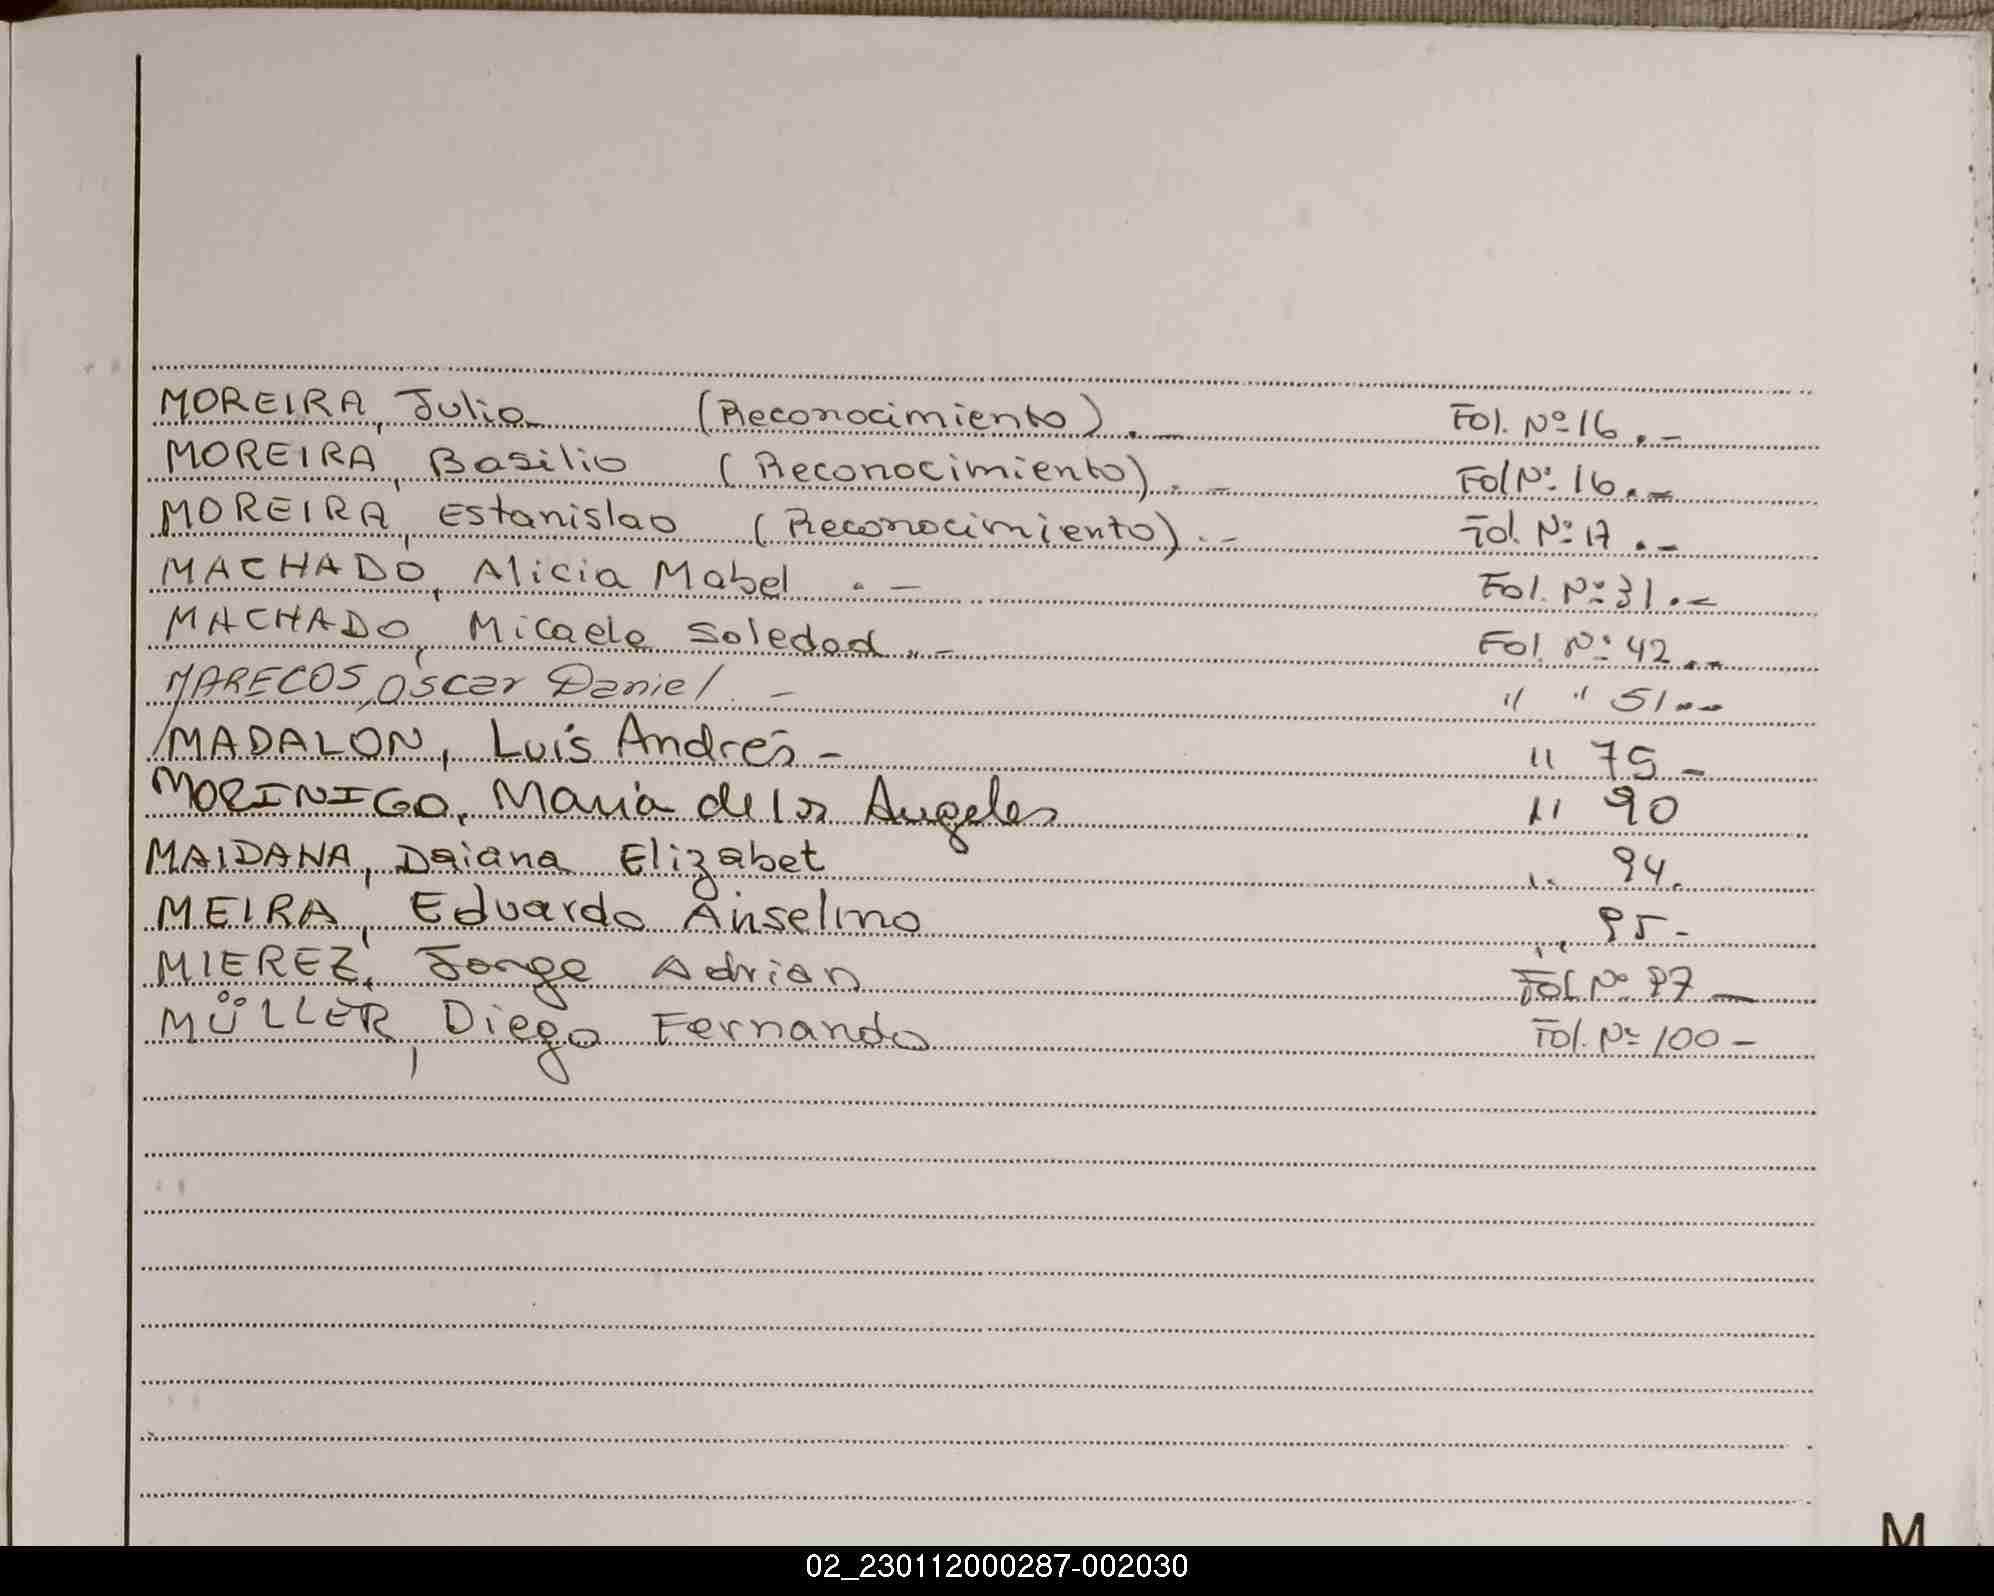 MOREIRA, Julio (Reconocimiento).- Fol. Nº 16.-
MOREIRA, Basilio (Reconocimiento).- Fol Nº 16.-
MOREIRA, Estanislao (Reconocimiento).- Fol. Nº 17.-
MACHADO, Alicia Mabel .- Fol. Nº 31.-
MACHADO, Micaela Soledad..- Fol. Nº 42..-
MARECOS, Oscar Daniel.- " " 51.--
MADALON, Luis Andrés - " 75-
MORINIGO, María de los Angeles " 90
MAIDANA, Daiana Elizabet " 94.
MEIRA, Eduardo Anselmo " 95-
MIEREZ, Jorge Adrian Fol. Nº 97-
MÜLLER, Diego Fernando Fol. Nº 100-
M
02_230112000287-002030